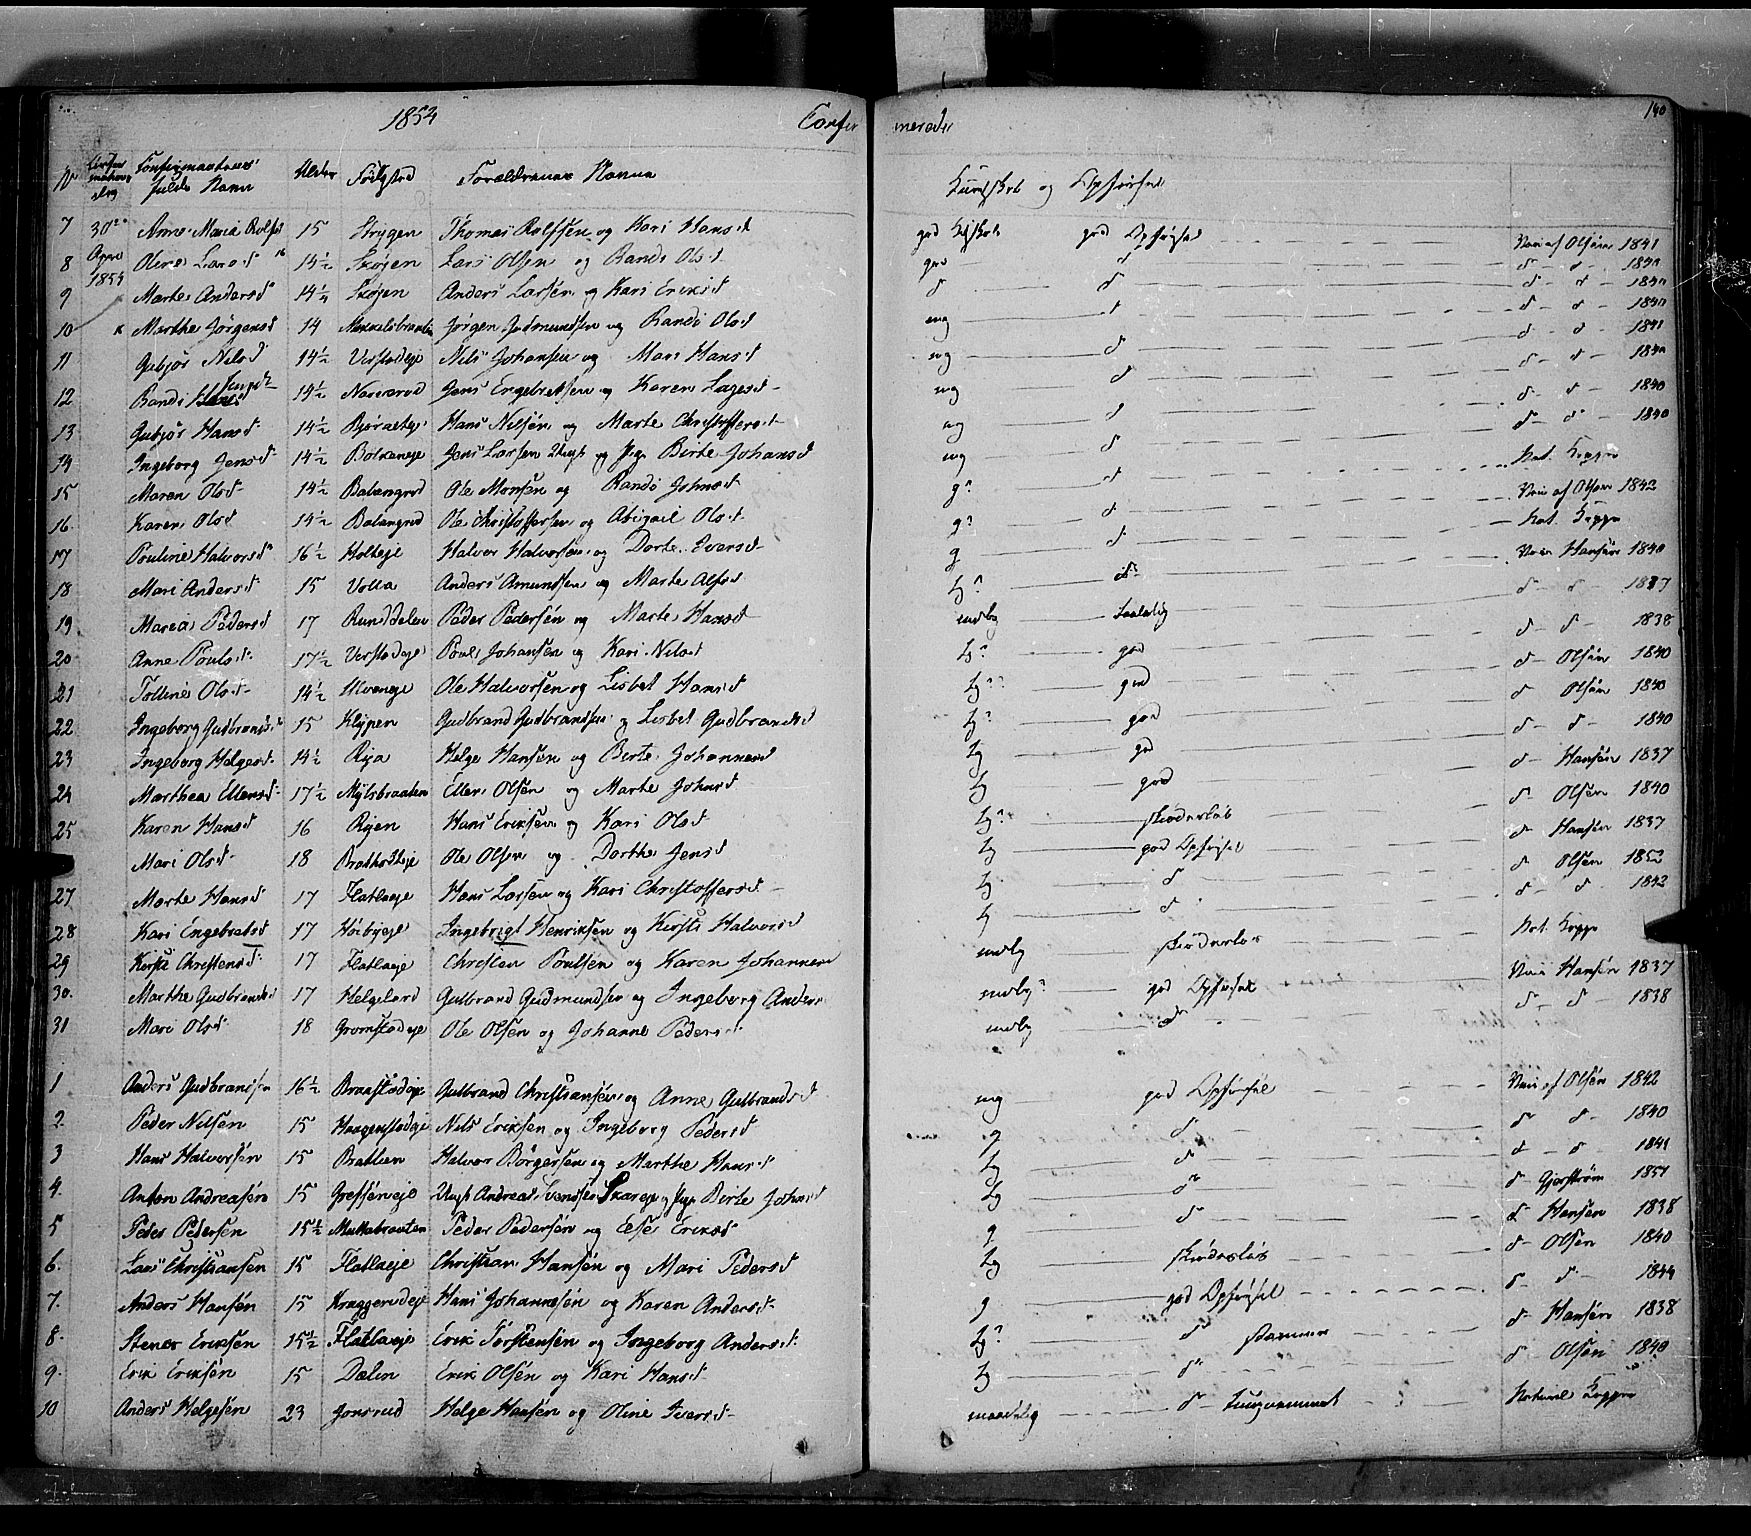 1854 Confir merede 140
N Confirmations dag Confirmantens fulde Navn Alder Fødested Forældrenes Navne Kundskab og Opførsel
7 30te April 1854 Anne Maria Rolfsd 15 Strygen Thomas Rolfsen og Kari Hansd god Kdskab god Opførsel Vac af Olsen 1841
8 Larsd 14½ Skøjen Lars Olsen og Randi Olsd d d - d -
9 Marte Andersd 14¼ Skøjen Anders Larsen og Kari Eriksd d d d - d -
10 Marthe Jørgensd 14 Jørgen Gudmundsen og Randi Olsd mg d d - d - 1840
11 Gubjør Nilsd 14½ Nils Johansen og Mari Hansd mg d d - d -
12 Randi Jensd 14½ Jens Engebretsen og Karen Lagesd mg d d - d - 1840
13 Gubjør Hansd 14½ Hans Nilsen og Marte Christoffersd mg d d - d - 1840
14 Ingeborg Jensd 14½ Jens Larsen Ungk og Pige Birte Johansd mg d Nat. Koppe
15 Maren Olsd 14½ Balangrud Ole Monsen og Randi Johnsd g? d Vac af Olsen 1842
16. Karen Olsd 14½ Balangrud Ole Christoffersen og Abigael Olsd g? d Nat. Koppe
17 Pouline Halvorsd 16½ Holteje Halvor Halvorsen og Dorte Iversd g d Vac Hansen 1840
18 Mari Andersd 15 Volla Anders Amundsen og Marte Alfsd d - d 1837
19. Marea Pedersd 17 Runddelen Peder Pedersen og Marte Hansd taalelig d - d - 1838
20 Anne Poulsd 17½ Poul Johansen og Kari Nilsd god d - Olsen 1840
21 Olsd 14½ Ulveneje Ole Halvorsen og Lisbet Hansd god d Olsen 1840
22 Ingeborg Gudbrandsd 15 Klypen Gudbrand Gudbrandsen og Lisbet Gudbrandsd god d - d - 1840
23 Ingeborg Helgesd 14½ Rya Helge Hansen og Birte Johannesd god d - Hansen 1837
24 Marthea Ellensd 17½ Mylsbraaten Ellen Olsen og Marte Johnsd god d - Olsen 1840
25 Karen Hansd 16 Ryen Hans Eriksen og Kari Olsd skjødesløs d - Hansen 1837
Mari Olsd 18 Ole Olsen og Dorthe Jensd god Opførsel d Olsen 1852
27 Marte Hansd 17 Flatlaeje Hans Larsen og Kari Christoffersd d d - d - 1842
28 Kari Engebretsd 17 Høibyeje Ingebrigt Henriksen og Kirsti Halvorsd d Nat. Koppe
29 Kirsti Christensd 17 Flatlaeje Christen Poulsen og Karen Johannesd skjødesløs Vac Hansen 1837
30. Marthe Gudbrandsd 17 Helgeland Gulbrand Gudmundsen og Ingeborg Anders god Opførsel d - d - 1838
31 Mari Olsd 18 Gromstadeje Ole Olsen og Johanne Pedersd d
1 Anders Gudbrandsen 16½ Gulbrand Christiansen og Anne Gulbrandsd mg god Opførsel Vac af Olsen 1842
2 Peder Nilsen 15 Haagenstadeje Nils Eriksen og Ingeborg Pedersd g d d d - 1840
3 Hans Halvorsen 15 Bratlien Halvor Børgersen og Marthe Hansd d d - d 1841
4. Anton Andreasen 15 Grefseneje Ungk Andreas Svendsen Skareje og Pige Birte Johnsd d d Gjerstrøm 1851
5 Peder Pedersen 15½ Peder Pedersen og Else Eriksd g d d Hansen 1838
6. Lars Christiansen 15 Flatlaeje Christian Hansen og Mari Pedersd skjødesløs d - Olsen 1840
7. Anders Hansen 15 Kraggerudeje Hans Johannesen og Karen Andersd g god Opførsel d - d - 1844
8. Stener Eriksen 15½ Flatlaeje Erik Torstensen og Ingeborg Andersd d d - Hansen 1838
9. Erik Eriksen 15 Dælin Erik Olsen og Kari Hansd d d Olsen 1840
10 Anders Helgesen 23 Jonsrud Helge Hansen og Oline Iversd maadelig d - tungnemmet Naturel Koppe